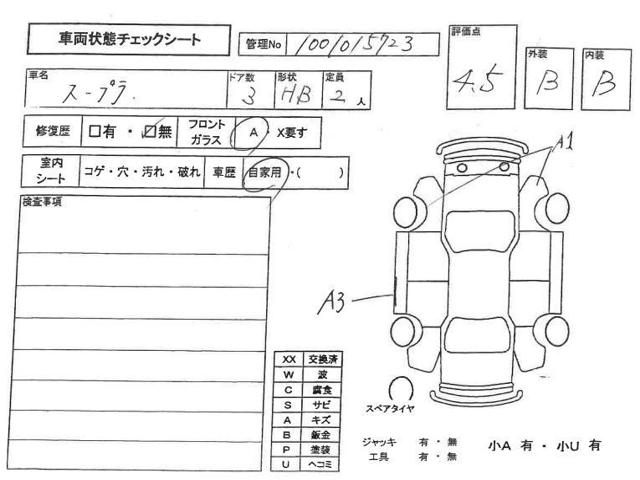 車両状態チェックシート
管理No 100/015723
評価点 4.5
外装 B
内装 B
車名 スープラ
ドア数 3
形状 HB
定員 2人
修復歴 □有・☑無
フロントガラス A・X要す
室内シート コゲ・穴・汚れ・破れ
車歴 自家用・( )
検査事項
A1
A3
XX 交換済
W 波
C 腐食
S サビ
A キズ
B 鈑金
P 塗装
U ヘコミ
スペアタイヤ
ジャッキ 有・無
工具 有・無
小A 有・小U 有